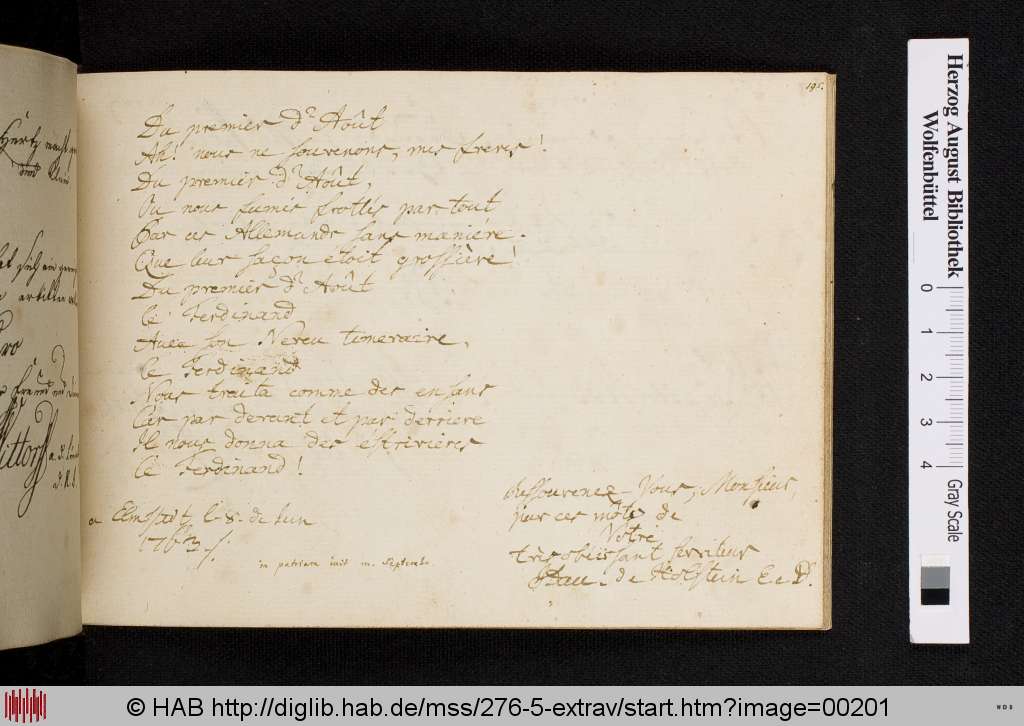 195.
Du premier d'Aôut
Ah! nous ne souvenons, mes freres!
Du premier d'Aôut,
Ou nous fumes frottés par tout
Par ces Allemands sans maniere.
Que leur façon etoit grossiere!
Du premier d'Aôut
le Ferdinand
Avec son Neveu temeraire,
le Ferdinand
Nous traita comme des enfans
Car par devant et par derriere
Il nous donna des estrivieres
le Ferdinand!
a Elmstät, l. 8. de Iuin
1763
in patriam iuit m. Septembr.
Ressouvenez-Vous, Monsieur,
par ces môts de
Votre
très obeissant serviteur
de Holstein
Herzog August Bibliothek
Wolfenbüttel
0
1
2
3
4
Gray Scale
© HAB http://diglib.hab.de/mss/276-5-extrav/start.htm?image=00201